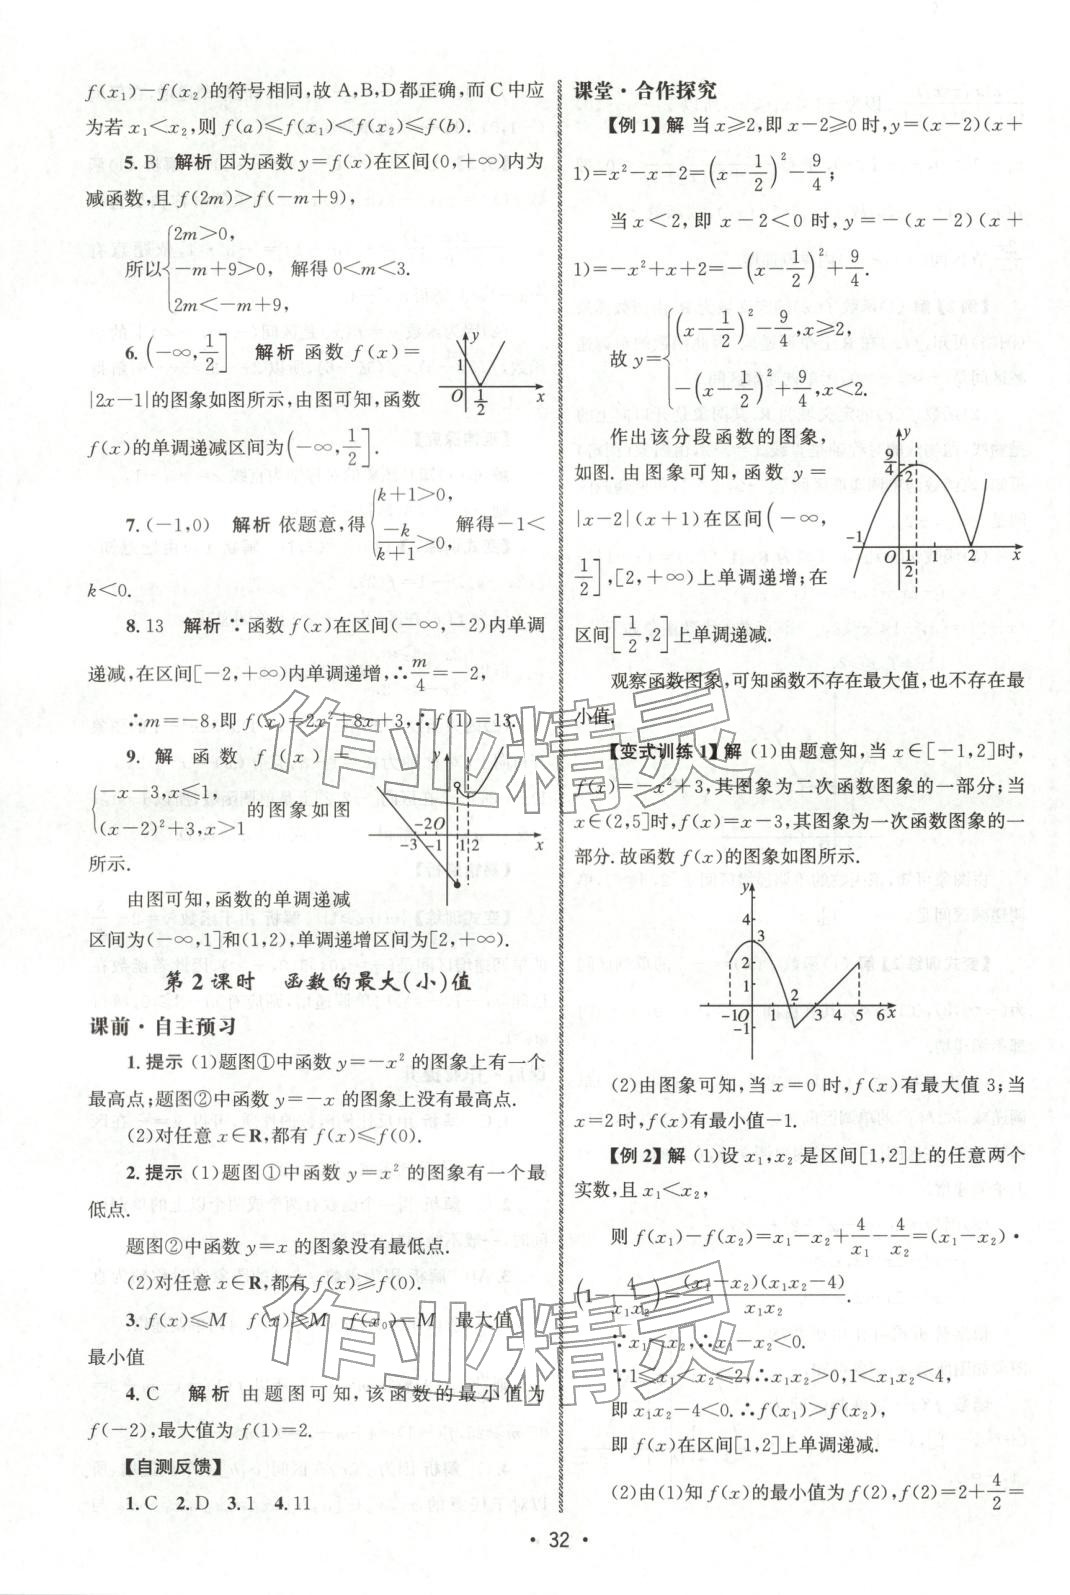 f(x₁)－f(x₂)的符号相同,故 A,B,D 都正确,而 C 中应
为若 x₁＜x₂,则 f(a)≤f(x₁)＜f(x₂)≤f(b).
5. B　解析　因为函数 y＝f(x)在区间(0,＋∞)内为
减函数,且 f(2m)＞f(－m＋9),
所以{2m＞0, －m＋9＞0, 2m＜－m＋9, 解得 0＜m＜3.
6. (－∞, 1/2]　解析　函数 f(x)＝
|2x－1|的图象如图所示,由图可知,函数
f(x)的单调递减区间为(－∞, 1/2].
y 1 O 1/2 x
7. (－1,0)　解析　依题意,得{k＋1＞0, －k/(k＋1)＞0, 解得－1＜
k＜0.
8. 13　解析　∵函数 f(x)在区间(－∞,－2)内单调
递减,在区间[－2,＋∞)内单调递增,∴m/4＝－2,
∴m＝－8,即 f(x)＝2x²＋8x＋3,∴f(1)＝13.
9. 解　函数 f(x)＝
{－x－3,x≤1, (x－2)²＋3,x＞1 的图象如图
所示.
y －3 －2 －1 O 1 2 x
由图可知,函数的单调递减
区间为(－∞,1]和(1,2),单调递增区间为[2,＋∞).
第 2 课时　函数的最大(小)值
课前·自主预习
1. 提示　(1)题图①中函数 y＝－x² 的图象上有一个
最高点;题图②中函数 y＝－x 的图象上没有最高点.
(2)对任意 x∈R,都有 f(x)≤f(0).
2. 提示　(1)题图①中函数 y＝x² 的图象有一个最
低点.
题图②中函数 y＝x 的图象没有最低点.
(2)对任意 x∈R,都有 f(x)≥f(0).
3. f(x)≤M　f(x)≥M　f(x₀)＝M　最大值
最小值
4. C　解析　由题图可知,该函数的最小值为
f(－2),最大值为 f(1)＝2.
【自测反馈】
1. C　2. D　3. 1　4. 11
课堂·合作探究
【例 1】解　当 x≥2,即 x－2≥0 时,y＝(x－2)(x＋
1)＝x²－x－2＝(x－1/2)²－9/4;
当 x＜2,即 x－2＜0 时,y＝－(x－2)(x＋
1)＝－x²＋x＋2＝－(x－1/2)²＋9/4.
故 y＝{(x－1/2)²－9/4,x≥2, －(x－1/2)²＋9/4,x＜2.
作出该分段函数的图象,
如图. 由图象可知,函数 y＝
|x－2|(x＋1)在区间(－∞,
1/2],[2,＋∞)上单调递增;在
区间[1/2,2]上单调递减.
y 9/4 2 －1 O 1/2 1 2 x
观察函数图象,可知函数不存在最大值,也不存在最
小值.
【变式训练 1】解　(1)由题意知,当 x∈[－1,2]时,
f(x)＝－x²＋3,其图象为二次函数图象的一部分;当
x∈(2,5]时,f(x)＝x－3,其图象为一次函数图象的一
部分. 故函数 f(x)的图象如图所示.
y 4 3 2 1 －1 0 2 3 4 5 6 x －1
(2)由图象可知,当 x＝0 时,f(x)有最大值 3;当
x＝2 时,f(x)有最小值－1.
【例 2】解　(1)设 x₁,x₂ 是区间[1,2]上的任意两个
实数,且 x₁＜x₂,
则 f(x₁)－f(x₂)＝x₁－x₂＋4/x₁－4/x₂＝(x₁－x₂)·
(1－4/(x₁x₂))＝(x₁－x₂)(x₁x₂－4)/(x₁x₂).
∵x₁＜x₂,∴x₁－x₂＜0.
∵1≤x₁＜x₂≤2,∴x₁x₂＞0,1＜x₁x₂＜4,
即 x₁x₂－4＜0. ∴f(x₁)＞f(x₂),
即 f(x)在区间[1,2]上单调递减.
(2)由(1)知 f(x)的最小值为 f(2),f(2)＝2＋4/2＝
· 32 ·
作业精灵
作业精灵